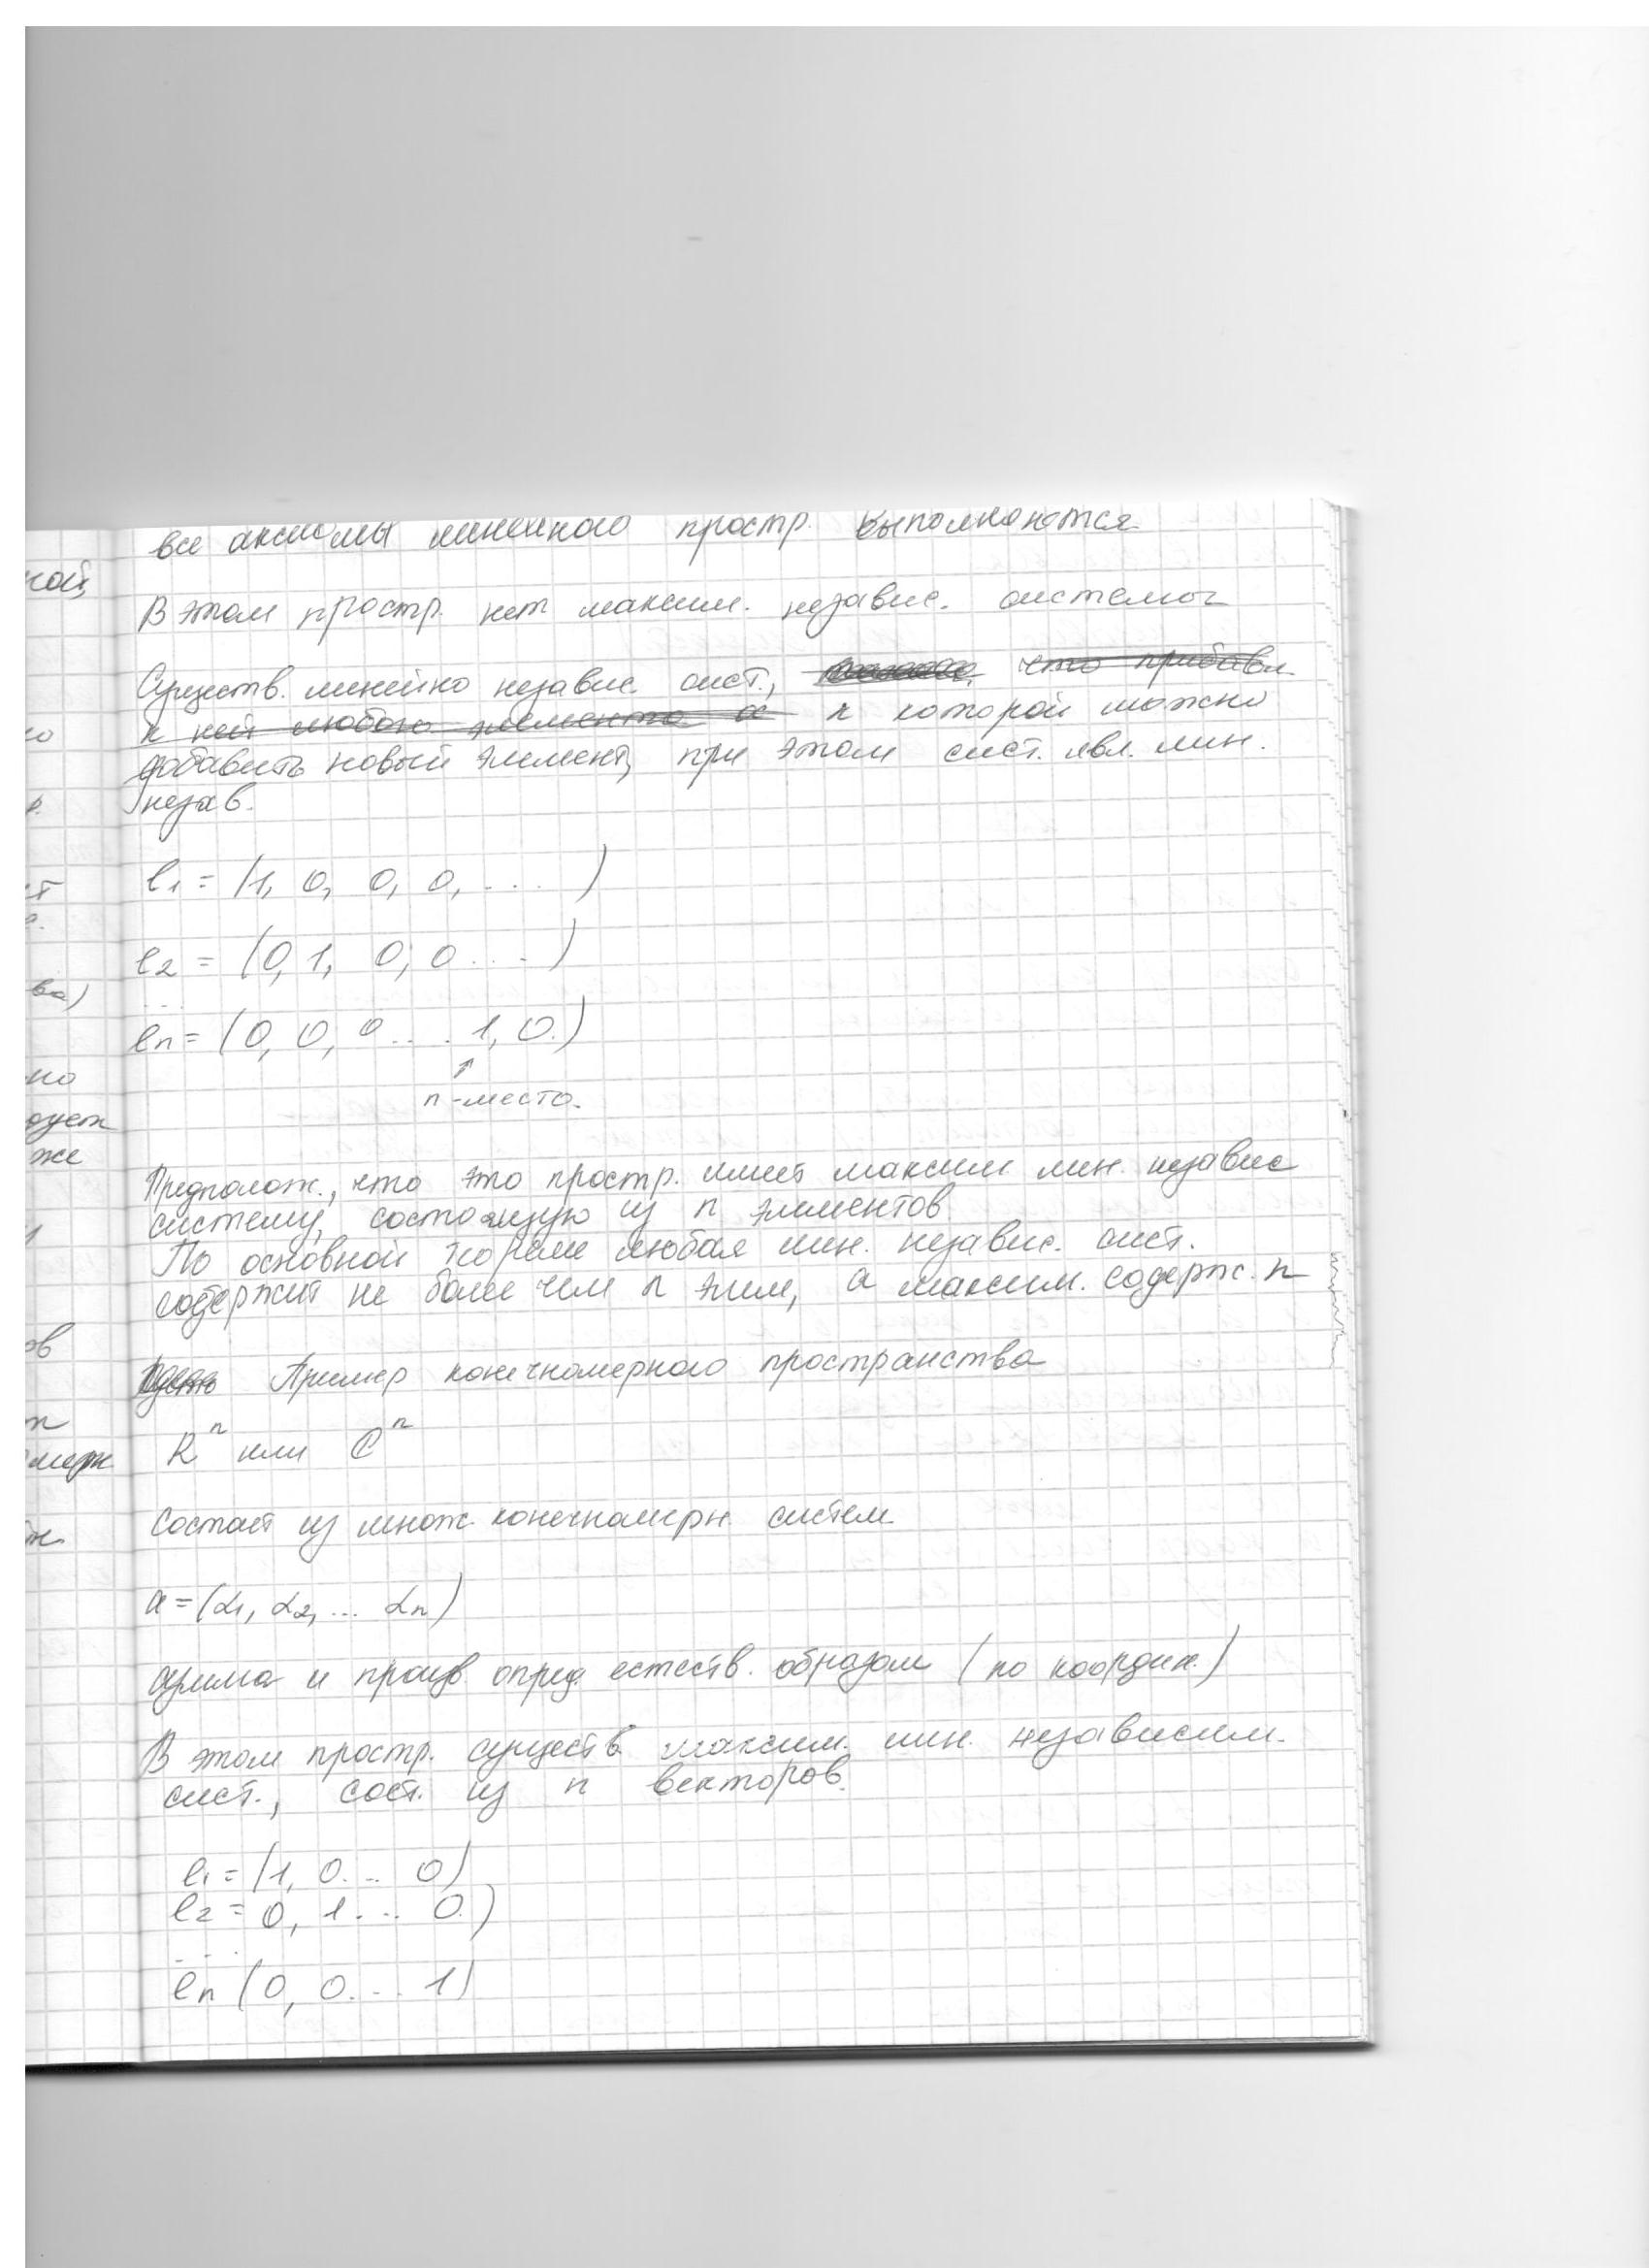 все аксиомы линейного простр. выполняются
В этом простр. нет максим. независ. системы
Существ. линейно независ. сист., что прибавл.
к ней любого элемента а к которой можно
добавить новый элемент, при этом сист. явл. лин.
незав.
e₁ = (1, 0, 0, 0, . . . )
e₂ = (0, 1, 0, 0 . . . )
. . .
eₙ = (0, 0, 0 . . . 1, 0.)
↑
n-место.
Предполож., что это простр. имеет максим лин. независ
систему, состоящую из n элементов
По основной теореме любая лин. независ. сист.
содержит не более чем n элем, а максим. содерж. n
Пусть Пример конечномерного пространства
Rⁿ или Cⁿ
Состоит из множ. конечномерн. систем
a = (α₁, α₂, ... αₙ)
сумма и произв. опред. естеств. образом (по координ.)
В этом простр. существ. максим. лин. независим.
сист., сост. из n векторов.
e₁ = (1, 0 . . . 0)
e₂ = 0, 1 . . . 0.)
. . . .
eₙ (0, 0 . . . 1)
ной,
ва)
но
же
ов